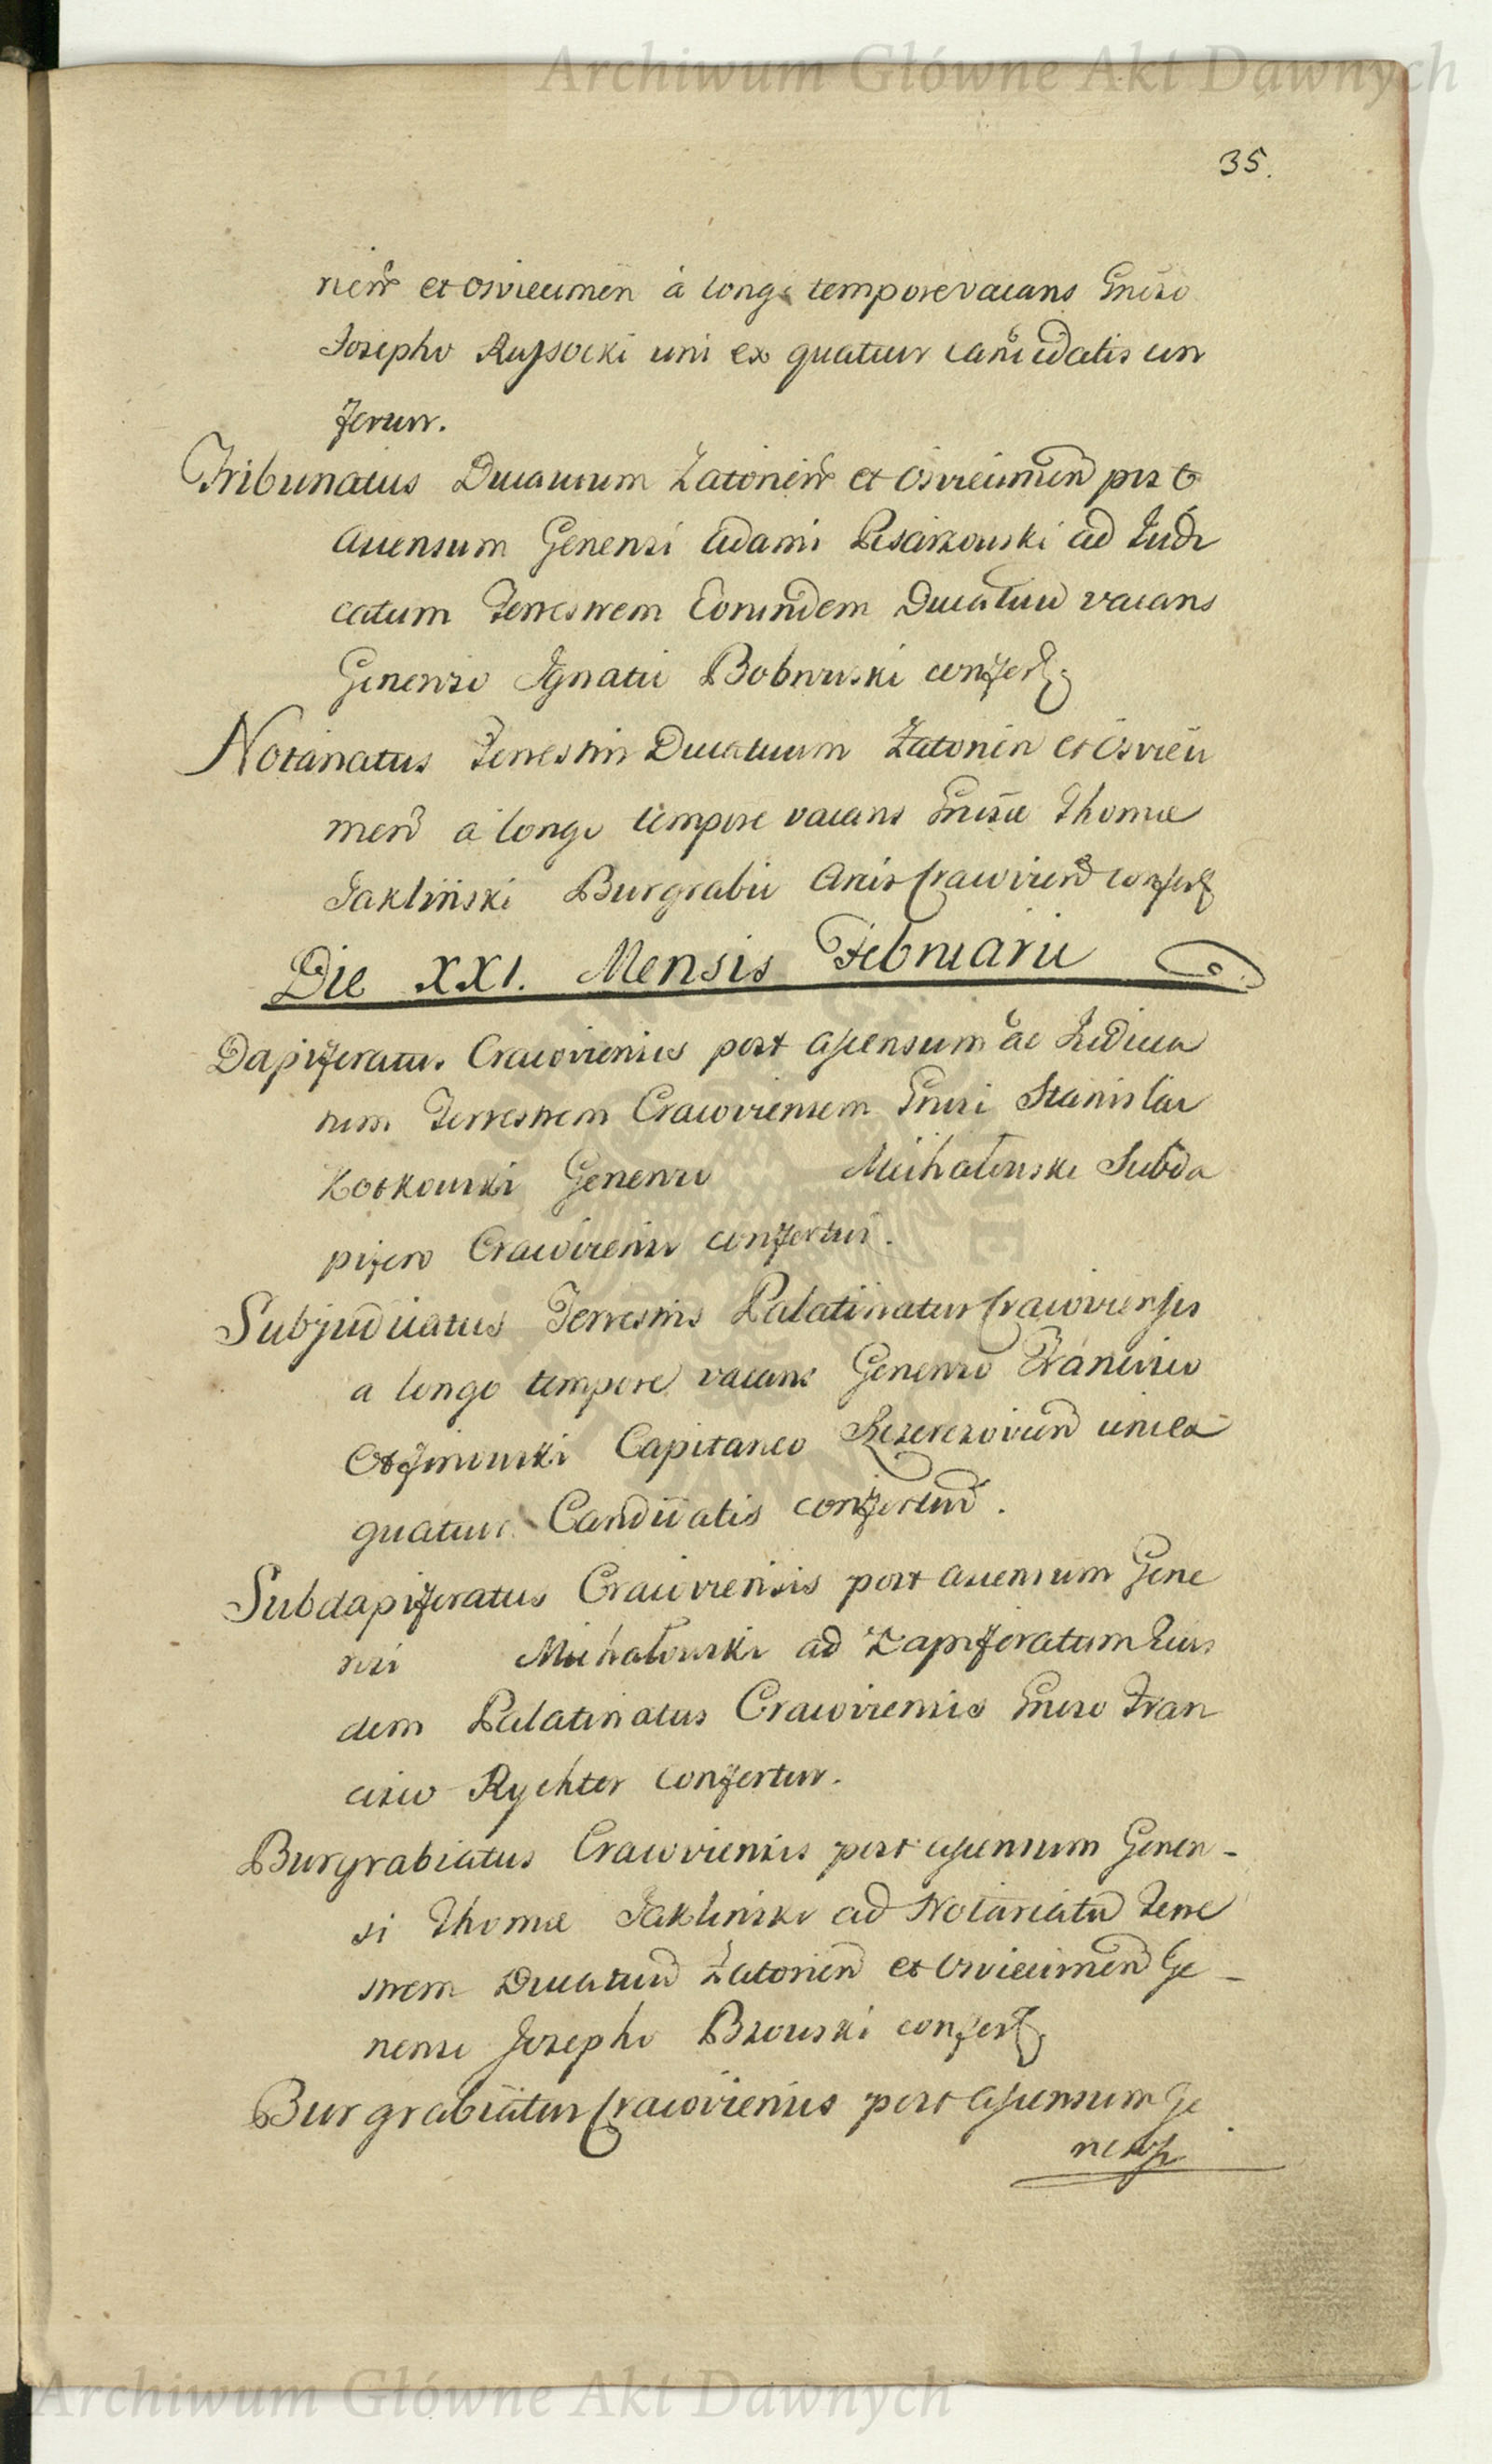 Archiwum Główne Akt Dawnych
35.
niem et Osviecimen à longo tempore vacans Gnoso
Josepho Rupsocki uni ex quatuor candidatis con
fertur.
Tribunatus Ducatuum Zatorien et Osviecimen post
Ascensum Generosi Adami Pisarzowski ad Judi
catum Terrestrem Eorundem Ducatuu vacans
Generoso Ignatio Bobrowski confert
Notariatus Terestris Ducatuum Zatorien et Osvieci
men à longo tempore vacans Gnoso Thomæ
Jakliński Burgrabio Arcis Cracovien confert
Die XXI. Mensis Februarii
Dapiferatus Cracoviensis post Ascensum ad Judica
tum Terrestrem Cracoviensem Gnosi Stanislai
Kotkowski Generoso Michałowski Subda
pifero Cracoviensi confertur.
Subjudicatus Terrestris Palatinatus Cracoviensis
a longo tempore vacans Generoso Francisco
Otfinowski Capitaneo uni ex
quatuor Candidatis confertur.
Subdapiferatus Cracoviensis post ascensum Gene
rosi Michałowski ad Dapiferatum Eius
dem Palatinatus Cracoviensis Gnoso Fran
cisco Rychter Confertur.
Burgrabiatus Cracoviensis post ascensum Genero-
si Thomæ Jakliński ad Notariatu Terre
strem Ducatuu Zatorien et Osviecimen Ge-
neroso Josepho Bzowski confert
Burgrabiatus Cracoviensis post Ascensum Ge
nerosi
Archiwum Główne Akt Dawnych